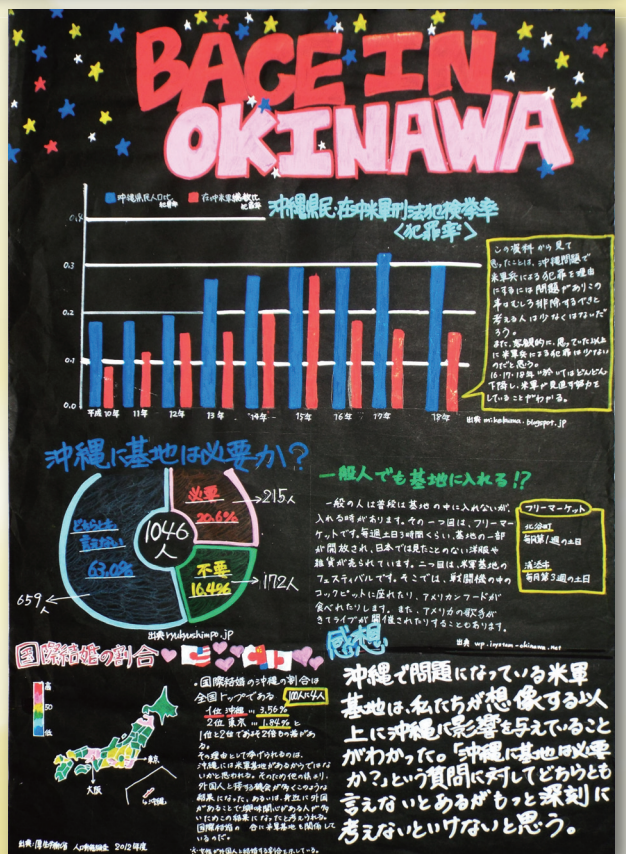 BACE IN
OKINAWA
沖縄県民人口比
犯罪率
在沖米軍
犯罪率
沖縄県民・在沖米軍刑法犯検挙率
<犯罪率>
0.4
0.3
0.2
0.1
0.0
平成10年
11年
12年
13年
14年
15年
16年
17年
18年
この資料から見て
思ったことは、沖縄問題で
米軍兵による犯罪を理由
にするには問題がありこの
事はむしろ排除するべきと
考える人は少なくはないだ
ろう。
また、客観的に、思っていた以上
に米軍兵による犯罪は少ない
のだと思う。
16・17・18年においてはどんどん
下降し、米軍が見直す努力を
していることがわかる。
沖縄に基地は必要か?
必要
20.6%
215人
1046
人
どちらとも
言えない
63.0%
659人
不要
16.4%
172人
出典 ryukyushimpo.jp
一般人でも基地に入れる!?
一般の人は普段は基地の中に入れないが、
入れる時があります。その一つ目は、フリーマー
ケットです。毎週土日3時間くらい、基地の一部
が開放され、日本では見たことのない洋服や
雑貨が売られています。二つ目は、米軍基地の
フェスティバルです。そこでは、戦闘機の中の
コックピットに座れたり、アメリカンフードが
食べれたりします。また、アメリカの歌手が
きてライブが開催されたりすることもあります。
フリーマーケット
北谷町
毎月第1週の土日
浦添市
毎月第3週の土日
国際結婚の割合
高
50
低
東京
大阪
沖縄
出典:厚生労働省 人口動態調査 2012年度
・国際結婚の沖縄の割合は
全国トップである
100人に4人
1位 沖縄 … 3.56%
2位 東京 … 1.84%と
1位と2位であっても2倍もの差があ
る。
その理由として挙げられるのは、
沖縄には米軍基地があるからではな
いかと思われる。そのため他の県より、
外国人と接する機会が多くこのような
結果になった。あるいは、身近に外国
があることで興味関心がある人が多
いためこの結果になったと考えられる。
国際結婚の 合に米軍基地も関係して
いるのだ。
※女性が外国人と結婚する割合を示している。
感想
沖縄で問題になっている米軍
基地は、私たちが想像する以
上に沖縄に影響を与えていること
がわかった。「沖縄に基地は必要
か?」という質問に対してどちらとも
言えないとあるがもっと深刻に
考えないといけないと思う。